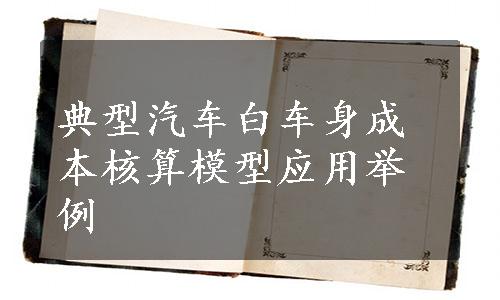 典型汽车白车身成
本核算模型应用举
例